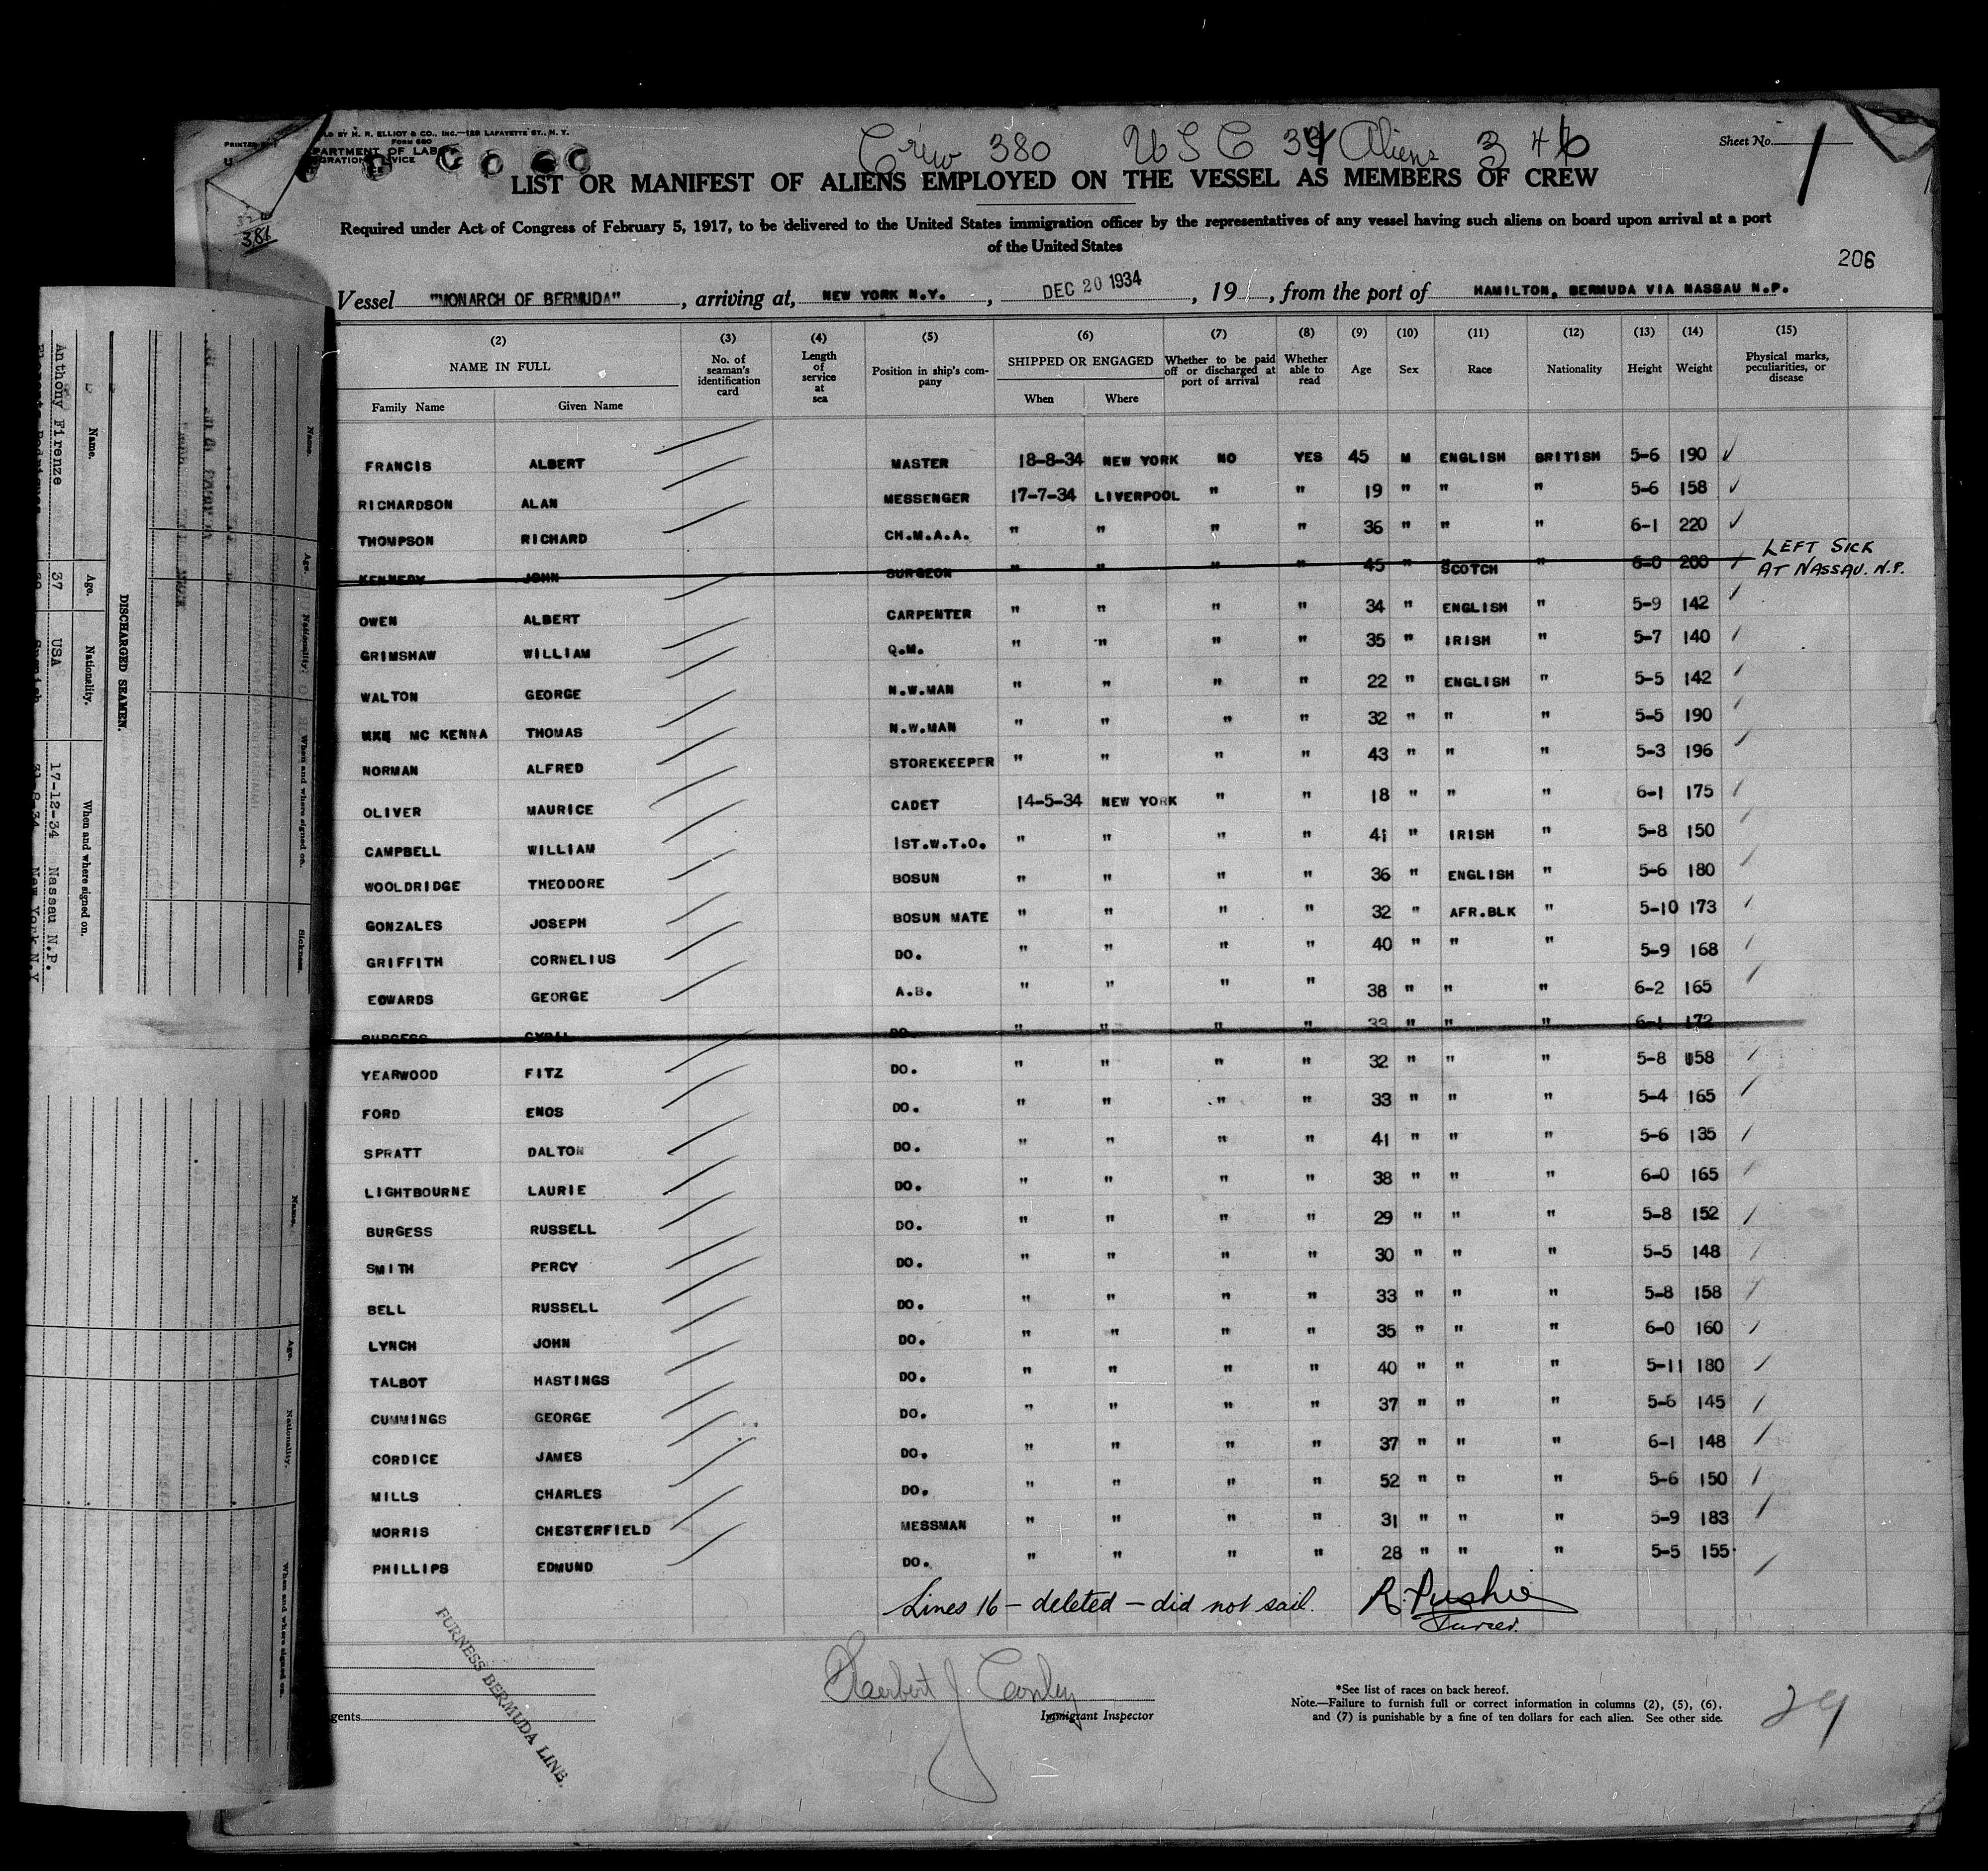 LD BY H. R. ELLIOT & CO., INC.—129 LAFAYETTE ST., N. Y.
PRINTED
FORM 680
U
PARTMENT OF LAB
GRATION SERVICE
Crew 380 USC 34 Aliens 346
Sheet No. 1
LIST OR MANIFEST OF ALIENS EMPLOYED ON THE VESSEL AS MEMBERS OF CREW
Required under Act of Congress of February 5, 1917, to be delivered to the United States immigration officer by the representatives of any vessel having such aliens on board upon arrival at a port
of the United States
381
206
Vessel "MONARCH OF BERMUDA", arriving at, NEW YORK N.Y., DEC 20 1934, 19 , from the port of HAMILTON, BERMUDA VIA NASSAU N.P.
(2) (3) (4) (5) (6) (7) (8) (9) (10) (11) (12) (13) (14) (15)
NAME IN FULL No. of seaman's identification card Length of service at sea Position in ship's company SHIPPED OR ENGAGED Whether to be paid off or discharged at port of arrival Whether able to read Age Sex Race Nationality Height Weight Physical marks, peculiarities, or disease
Family Name Given Name When Where
FRANCIS ALBERT MASTER 18-8-34 NEW YORK NO YES 45 M ENGLISH BRITISH 5-6 190 ✓
RICHARDSON ALAN MESSENGER 17-7-34 LIVERPOOL " " 19 " " " 5-6 158 ✓
THOMPSON RICHARD CH.M.A.A. " " " " 36 " " " 6-1 220 ✓
KENNEDY JOHN SURGEON " " " " 45 " SCOTCH " 6-0 200 LEFT SICK
AT NASSAU. N.P.
OWEN ALBERT CARPENTER " " " " 34 " ENGLISH " 5-9 142
GRIMSHAW WILLIAM Q.M. " " " " 35 " IRISH " 5-7 140
WALTON GEORGE N.W.MAN " " " " 22 " ENGLISH " 5-5 142
MC KENNA THOMAS N.W.MAN " " " " 32 " " " 5-5 190
NORMAN ALFRED STOREKEEPER " " " " 43 " " " 5-3 196
OLIVER MAURICE CADET 14-5-34 NEW YORK " " 18 " " " 6-1 175
CAMPBELL WILLIAM 1ST.W.T.O. " " " " 41 " IRISH " 5-8 150
WOOLDRIDGE THEODORE BOSUN " " " " 36 " ENGLISH " 5-6 180
GONZALES JOSEPH BOSUN MATE " " " " 32 " AFR.BLK " 5-10 173
GRIFFITH CORNELIUS DO. " " " " 40 " " " 5-9 168
EDWARDS GEORGE A.B. " " " " 38 " " " 6-2 165
BURGESS CYRIL DO. " " " " 33 " " " 6-1 172
YEARWOOD FITZ DO. " " " " 32 " " " 5-8 158
FORD ENOS DO. " " " " 33 " " " 5-4 165
SPRATT DALTON DO. " " " " 41 " " " 5-6 135
LIGHTBOURNE LAURIE DO. " " " " 38 " " " 6-0 165
BURGESS RUSSELL DO. " " " " 29 " " " 5-8 152
SMITH PERCY DO. " " " " 30 " " " 5-5 148
BELL RUSSELL DO. " " " " 33 " " " 5-8 158
LYNCH JOHN DO. " " " " 35 " " " 6-0 160
TALBOT HASTINGS DO. " " " " 40 " " " 5-11 180
CUMMINGS GEORGE DO. " " " " 37 " " " 5-6 145
CORDICE JAMES DO. " " " " 37 " " " 6-1 148
MILLS CHARLES DO. " " " " 52 " " " 5-6 150
MORRIS CHESTERFIELD MESSMAN " " " " 31 " " " 5-9 183
PHILLIPS EDMUND DO. " " " " 28 " " " 5-5 155
Lines 16 — deleted — did not sail. R. Pushie
Purser.
FURNESS BERMUDA LINE.
Herbert J. Conley
gents
Immigrant Inspector
*See list of races on back hereof.
Note.—Failure to furnish full or correct information in columns (2), (5), (6),
and (7) is punishable by a fine of ten dollars for each alien. See other side.
29
DISCHARGED SEAMEN.
Name. Age. Nationality. When and where signed on.
Anthony Firenze 37 USA 17-12-34 Nassau N.P.
31-8-34 New York N.Y
Name. Age. Nationality. When and where signed on. Sickness.
Name. Age. Nationality. When and where signed on.